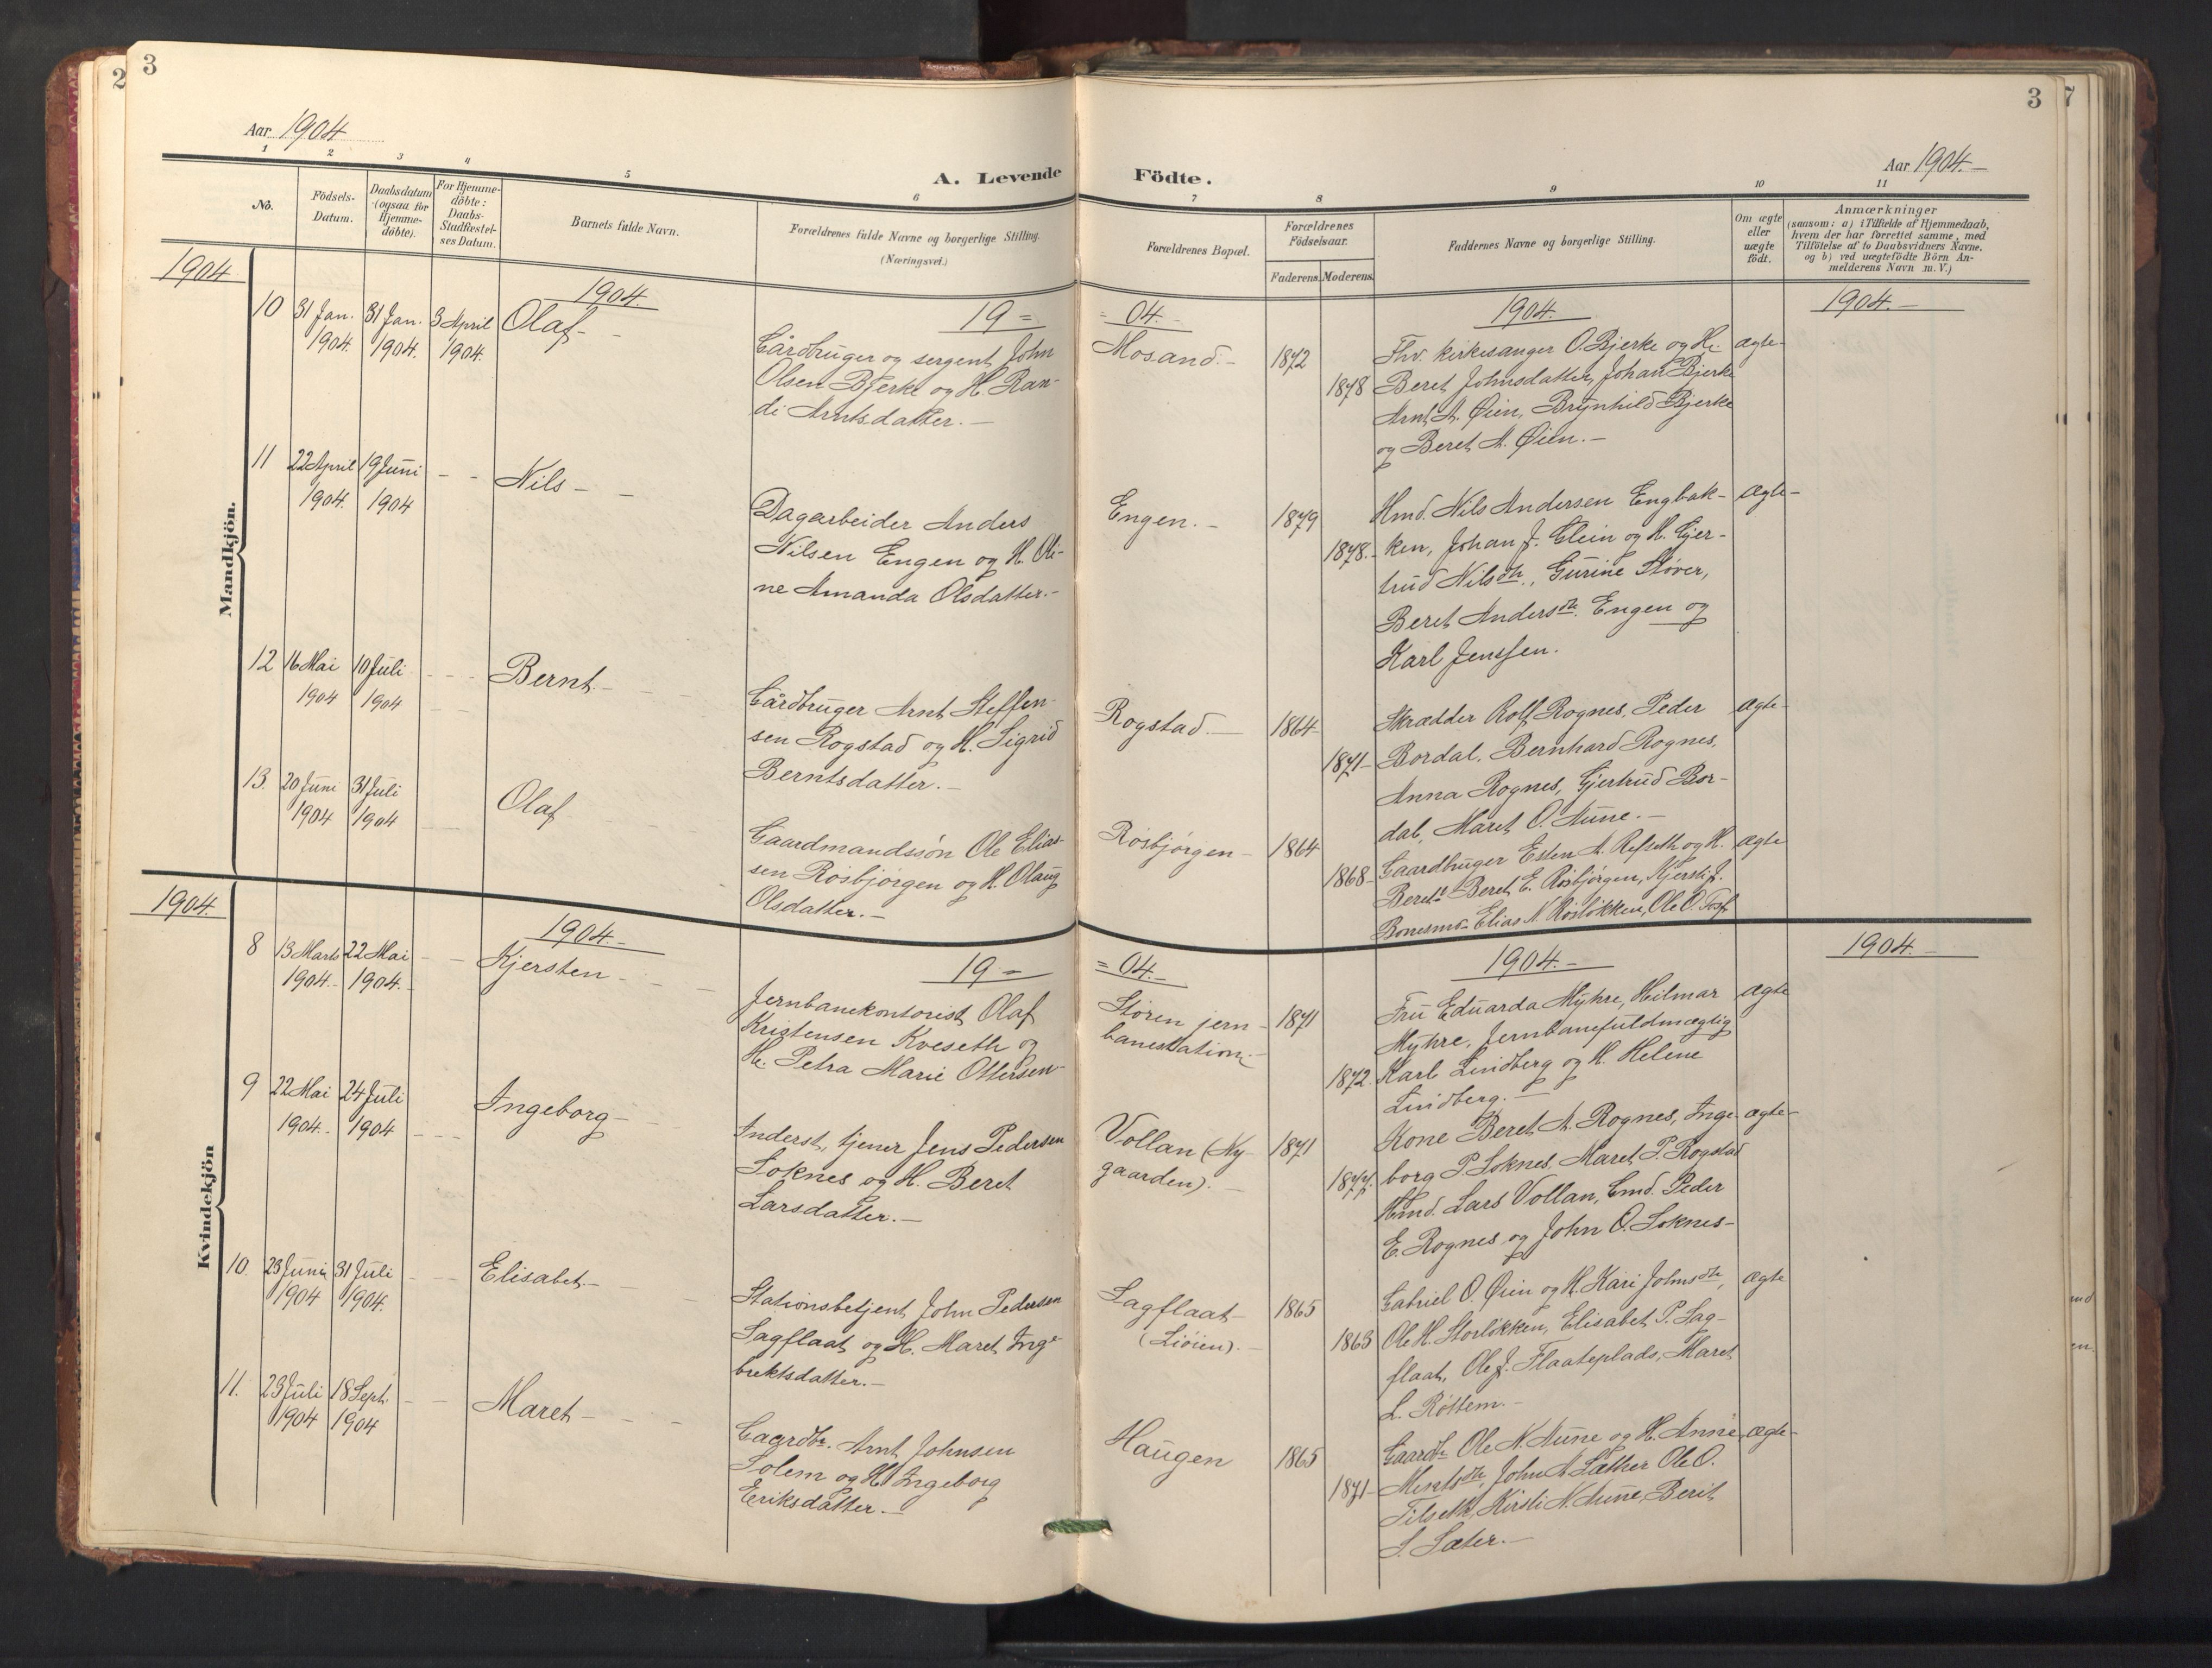 2
3
Aar 1904
1 2 3 4 5 6
A. Levende
No.
Födsels-
Datum.
Daabsdatum
(ogsaa for
Hjemme-
döbte).
For Hjemme-
döbte:
Daabs-
Stadfæstel-
ses Datum.
Barnets fulde Navn.
Forældrenes fulde Navne og borgerlige Stilling.
(Næringsvei.)
Mandkjön.
1904
1904.
19 =
10 31 Jan. 31 Jan. 3 April Olaf -
1904. 1904. 1904.
Gårdbruger og sergent John
Olsen Bjerke og H. Ran-
di Arntsdatter. -
11 22 April 19 Juni - - Nils - -
1904. 1904
Dagarbeider Anders
Nilsen Engen og H. Oli-
ne Amanda Olsdatter. -
12 16 Mai 10 Juli - - - Bernt. -
1904 1904
Gårdbruger Arnt Steffen-
sen Rogstad og H. Sigrid
Berntsdatter. -
13. 20 Juni 31 Juli Olaf
1904 1904
Gaardmandssøn Ole Elias-
sen Rosbjørgen og H. Olaug
Olsdatter. -
Kvindekjön
1904.
1904. -
19 =
8 13 Marts 22 Mai - - Kjersten -
1904. - 1904. -
Jernbanekontorist Olaf
Kristensen Kveseth og
H. Petra Marie Ottersen -
9 22 Mai 24 Juli Ingeborg -
1904. - 1904 - - -
Inderst, tjener Jens Pedersen
Soknes og H. Beret
Larsdatter. -
10. 23 Juni 31 Juli - - Elisabet. -
1904 1904.
Stationsbetjent John Pedersen
Sagflaat og H. Maret Inge-
brektsdatter. -
11. 23 Juli 18 Sept. - - Maret - - -
1904 1904
Gaardbr. Arnt Johnsen
Solem og H. Ingeborg
Eriksdatter. -
3
7
Aar 1904. -
Födte.
7 8 9 10 11
Forældrenes Bopæl.
Forældrenes
Födselsaar.
Faderens. Moderens.
Faddernes Navne og borgerlige Stilling.
Om ægte
eller
uægte
födt.
Anmærkninger
(saasom: a) i Tilfælde af Hjemmedaab,
hvem der har forrettet samme, med
Tilföielse af to Daabsvidners Navne,
og b) ved uægtefödte Börn An-
melderens Navn m. V.)
= 04. -
1904.
1904. -
Mosand. - 1872
1878
Fhv. kirkesanger O. Bjerke og H. ægte -
Beret Johnsdatter, Johan Bjerke
Arnt A. Øien, Brynhild Bjerke
og Beret A. Øien. -
Engen. - 1879
1878. -
Hmd. Nils Andersen Engbak- ægte -
ken, Johan J. Glein og H. Gjer-
trud Nilsdtr., Gurine Støver,
Beret Andersdtr. Engen og
Karl Jenssen.
Rogstad. - 1864
1871 -
Skrædder Rolf Rognes, Peder ægte -
Bordal. Bernhard Rognes,
Anna Rognes, Gjertrud Bor-
dal, Maret O. Aune. -
Rosbjørgen - 1864
1868 -
Gaardbruger Esten A. Refseth og H. ægte
Beret Beret E. Rosbjørgen, Kjersti J.
Bonesmo Elias N. Rosløkken, Ole O.
= 04. -
1904. -
1904. -
Støren jern- 1871
banestation. -
1872.
Fru Eduarda Myhre, Hilmar ægte
Myhre, Jernbanefuldmægtig
Karl Lindberg og H. Helene
Lindberg. -
Vollan (Ny- 1871
gaarden). -
1877.
Kone Beret A. Rognes, Inge- ægte -
borg P. Soknes, Maret P. Rogstad
Hmd. Lars Vollan, Gmd. Peder
E. Rognes og John O. Soknes -
Sagflaat - 1865
(Liøien). -
1863
Gabriel O. Øien og H. Kari Johnsdtr, ægte
Ole H. Storløkken, Elisabet P. Sag-
flaat, Ole J. Flaateplads, Maret
L. Røttem. -
Haugen 1865
1871 -
Gaardbr Ole N. Aune og H. Anne ægte -
John A. Sæther Ole O.
Tilseth, Kirsti N. Aune, Berit
S. Sæter. -